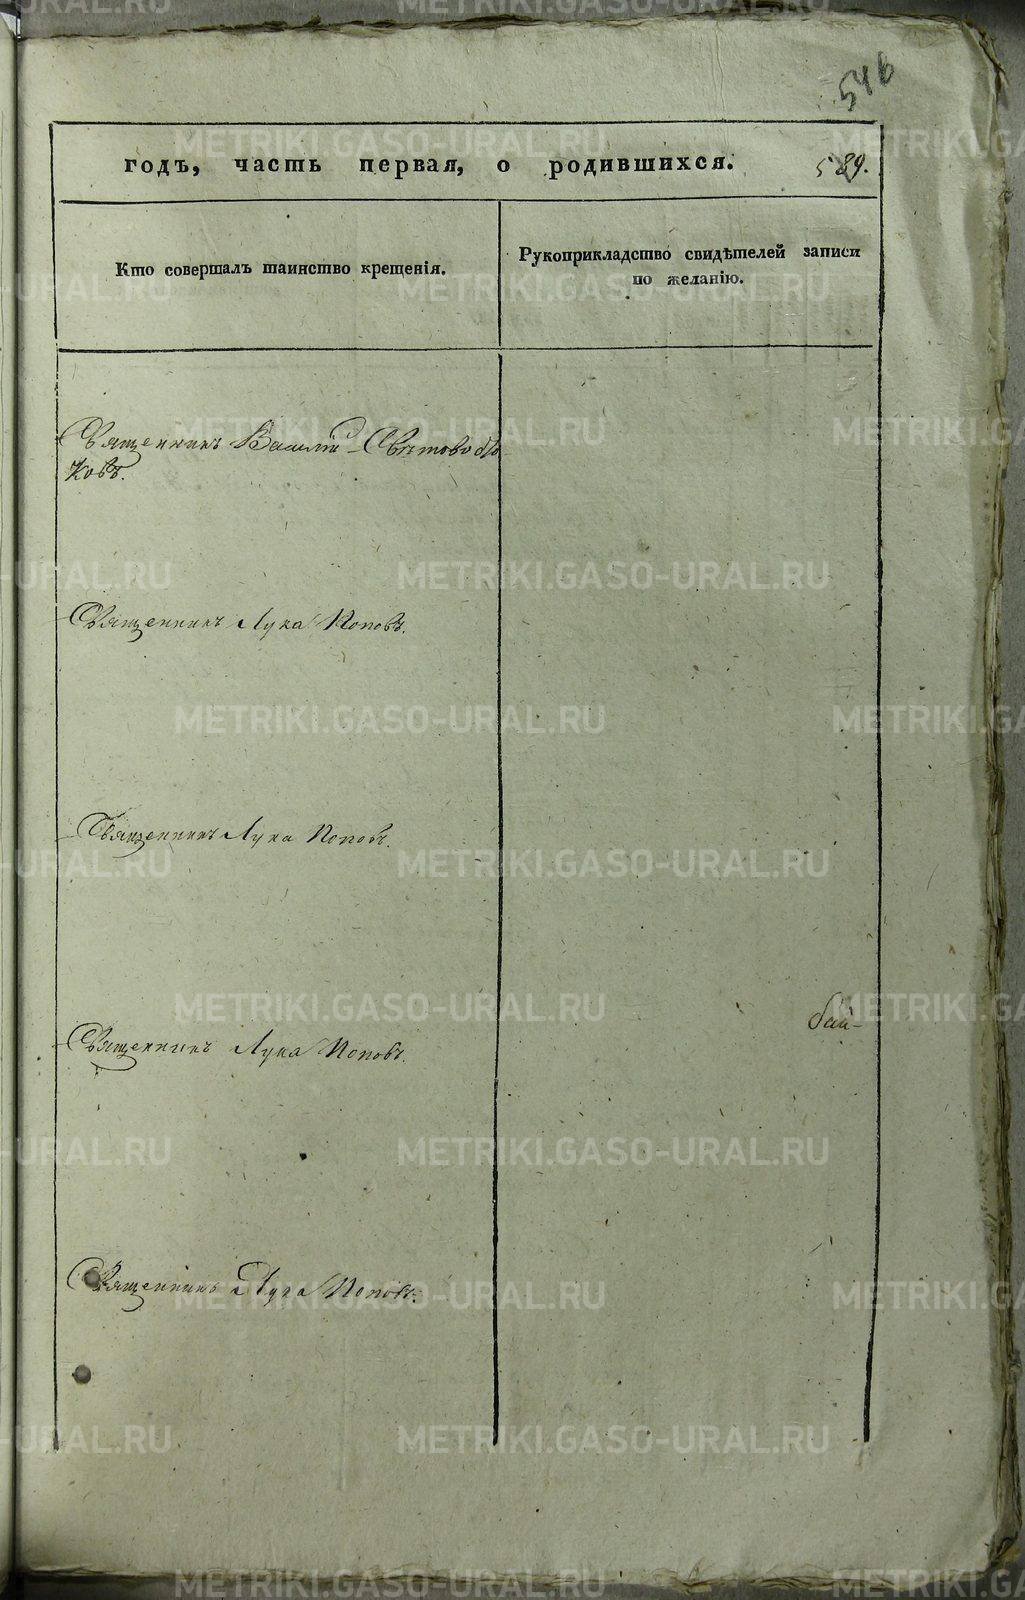 546
годъ, часть первая, о родившихся. 589.
Кто совершалъ таинство крещенія.
Рукоприкладство свидѣтелей записи
по желанію.
Священникъ Василій
ковъ.
Священникъ Лука Поповъ.
Священникъ Лука Поповъ.
Священникъ Лука Поповъ.
Священникъ Лука Поповъ.
METRIKI.GASO-URAL.RU